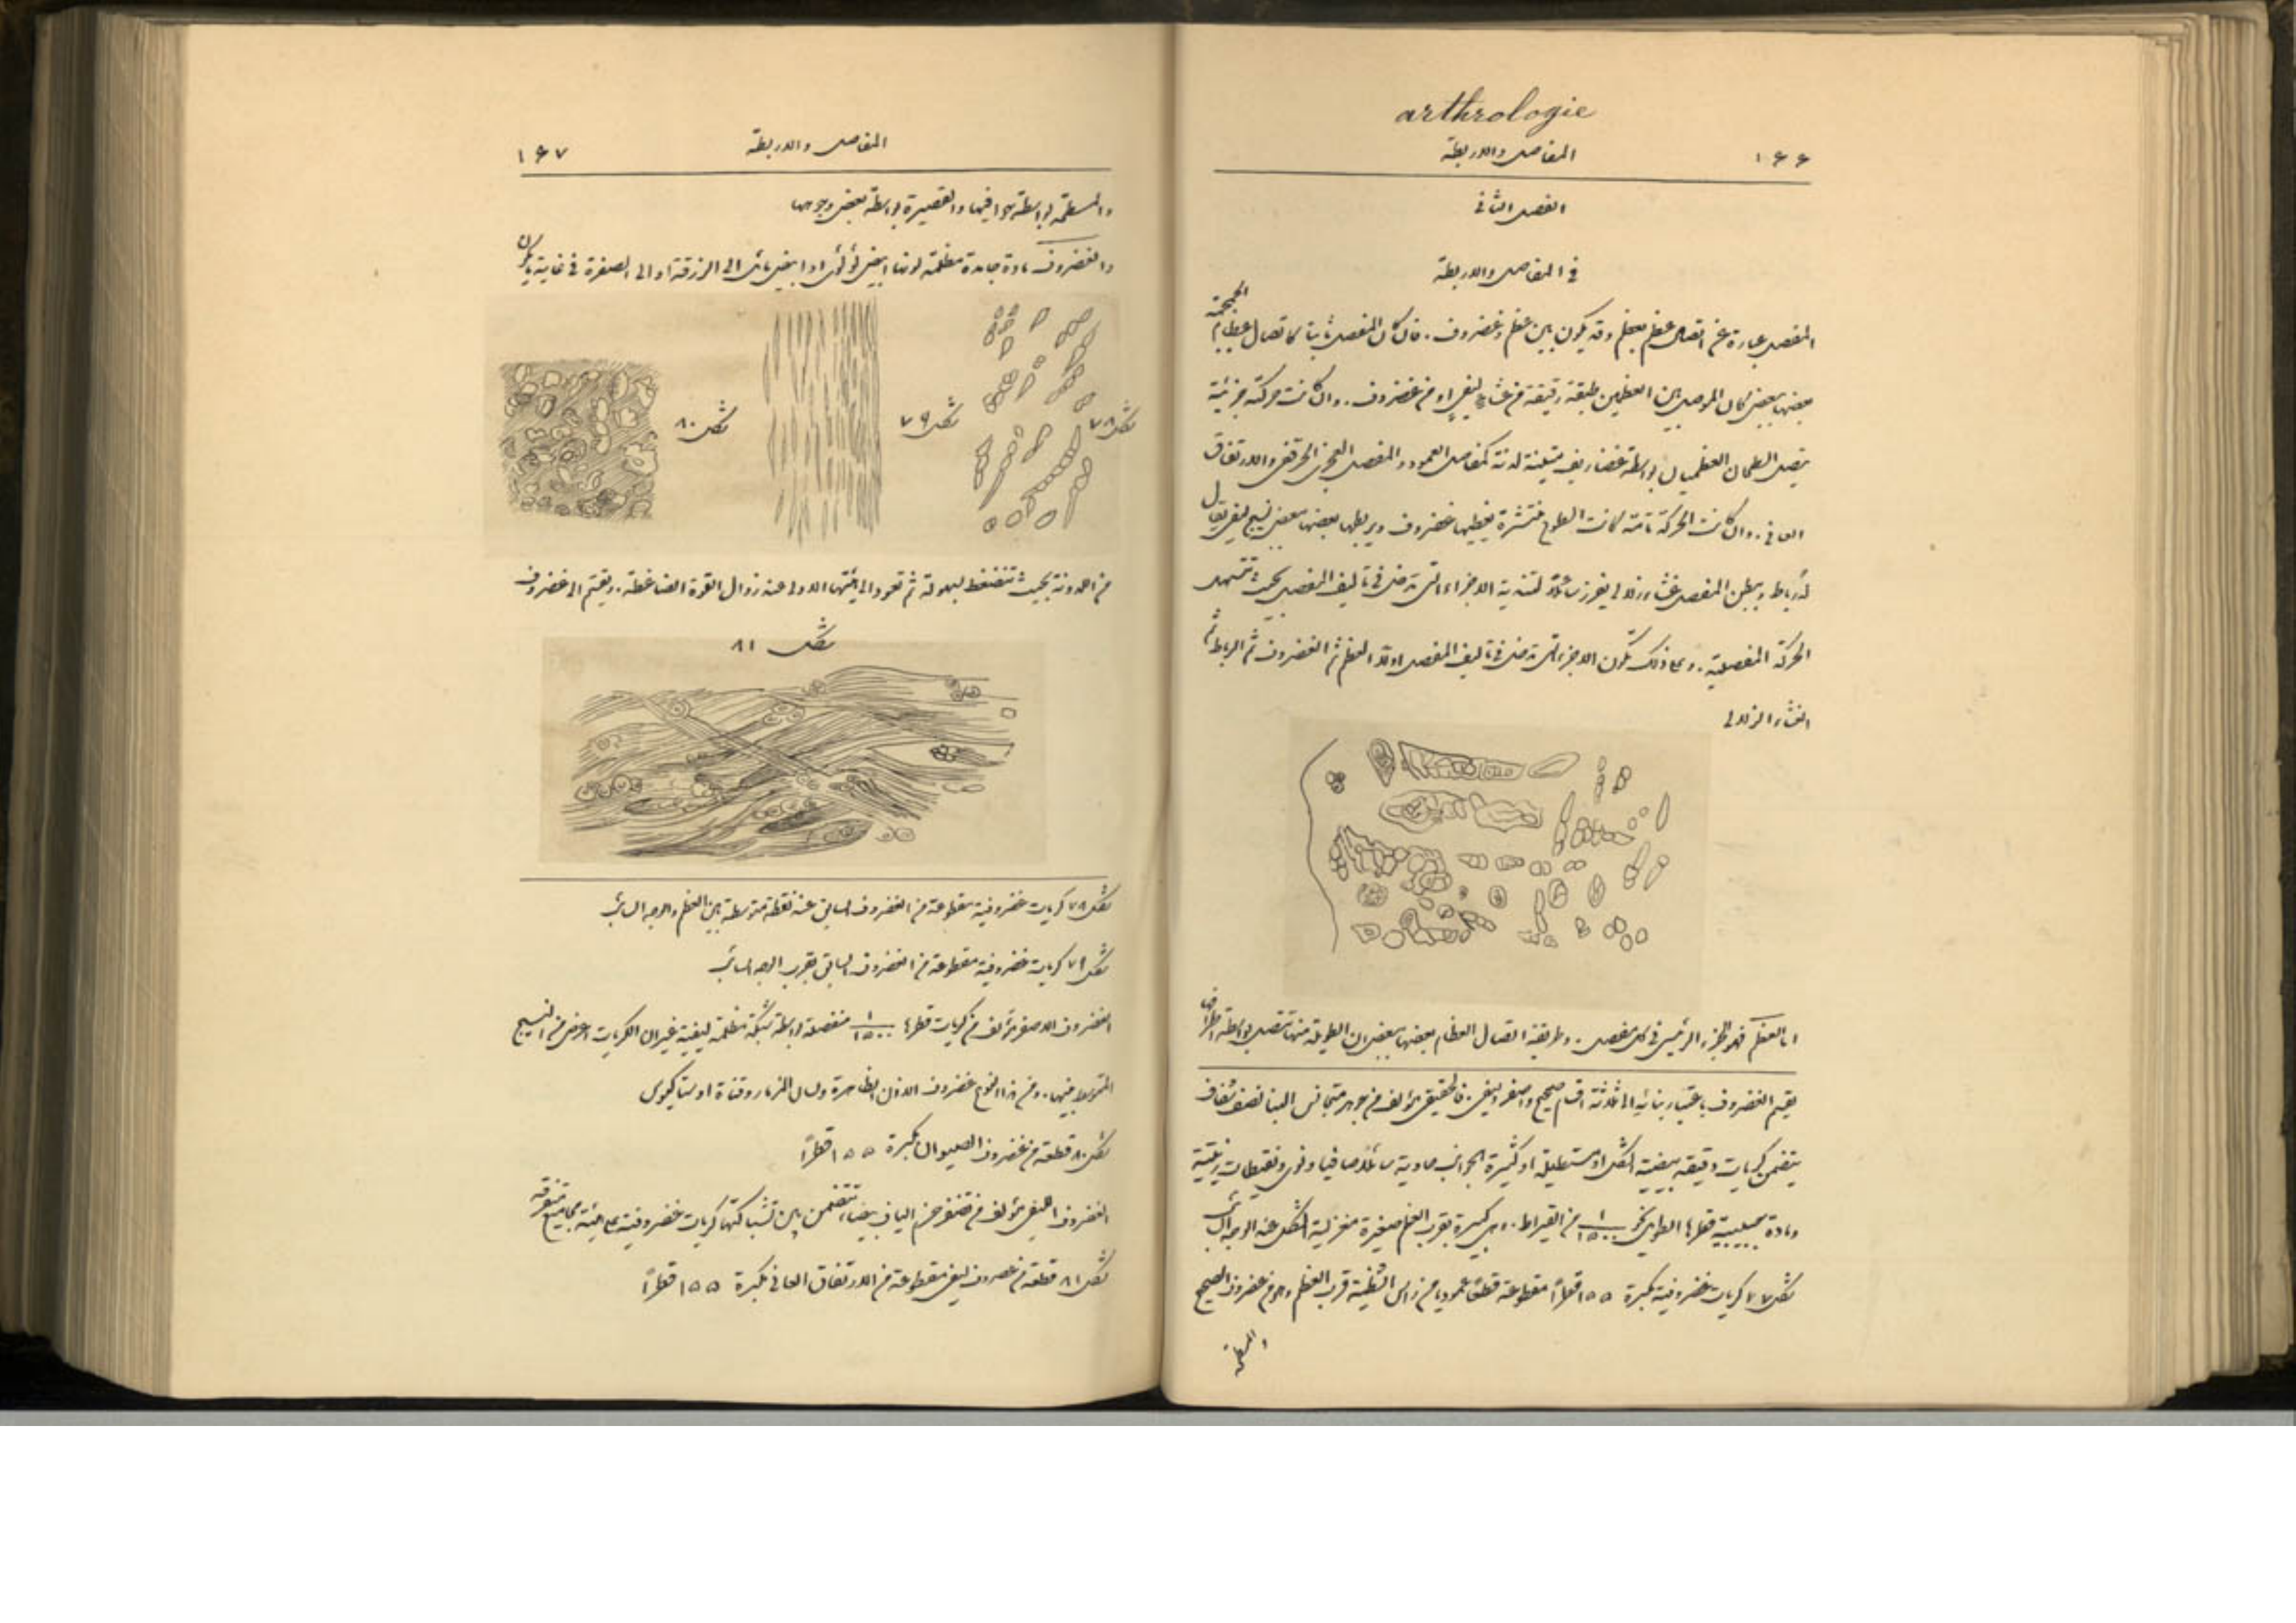 arthrologie
١٤٤ المفاصل والاربطة
الفصل الثاني
في المفاصل والاربطة
المفصل عبارة عن اتصال عظم بعظم وقد يكون بين عظم وغضروف. فان كان المفصل ثابتا كاتصال عظام الجمجمة
بعضها ببعض كان الموصل بين العظمين طبقة رقيقة من غشاء ليفي او من غضروف. وان كانت حركته جزئية
يتصل السطحان العظميان بواسطة غضاريف متينة لدنة كمفاصل العمود والمفصل العجزي الحرقفي والارتفاق
العاني. وان كانت الحركة تامة كانت السطوح منتشرة يغطيها غضروف ويربطها بعضها ببعض نسيج ليفي يقال
له رباط ويبطن المفصل غشاء زلالي يفرز سائلا لتندية الاجزاء التي تدخل في تاليف المفصل بحيث تتسهل
الحركة المفصلية. وعلى ذلك تكون الاجزاء التي تدخل في تاليف المفصل اولا العظم ثم الغضروف ثم الرباط ثم
الغشاء الزلالي
اما العظم فهو الجزء الرئيس في كل مفصل. وطريقة اتصال العظام بعضها ببعض ان الطويلة منها تتصل بواسطة اطرافها
يقسم الغضروف باعتبار بنائه الى ثلاثة اقسام صحيح واصفر وليفي. فالحقيقي مؤلف من جوهر متجانس البنا نصف شفاف
يتضمن كريات دقيقة بيضية الشكل او مستطيلة او كثيرة الجوانب حاوية سائلا صافيا ونوى ونقيطات زيتية
ومادة حبيبية قطرها الطولي نحو ١/١٥٠٠ من القيراط. وهي كبيرة بقرب العظم صغيرة مغزلية الشكل عند الوجه السائب
شكل ٧٧ كريات غضروفية مكبرة ١٥٥ قطرًا مقطوعة قطعًا عموديا من راس الشظية قرب العظم وهو من غضروف الصحيح
والمسطحة
١٤٧ المفاصل والاربطة
والمسطحة بواسطة حوافيها والقصيرة بواسطة بعض وجوهها
والغضروف مادة جامدة مظلمة لونها ابيض لؤلؤي او ابيض مائل الى الزرقة او الى الصفرة في غاية ما يكون
شكل ٧٨
شكل ٧٩
شكل ٨٠
من اللدونة بحيث تنضغط بسهولة ثم تعود الى هيئتها الاولى عند زوال القوة الضاغطة. ويقسم الى غضروف
شكل ٨١
شكل ٧٨ كريات غضروفية مقطوعة من الغضروف السابق عند نقطة متوسطة بين العظم والوجه السائب
شكل ٧٩ كريات غضروفية مقطوعة من الغضروف السابق بقرب الوجه السائب
الغضروف الاصفر مؤلف من كريات قطرها ١/١٥٠٠ منفصلة بواسطة شبكة مظلمة ليفية غير ان الكريات اعرض من النسيج
المتوسط بينها. ومن هذا النوع غضروف الاذن الظاهرة ولسان المزمار وقناة اوستاكيوس
شكل ٨٠ قطعة من غضروف الصيوان مكبرة ١٥٥ قطرًا
الغضروف الليفي مؤلف من حزم الياف بيضاء تتضمن بين تشبكاتها كريات غضروفية على هيئة مجاميع متفرقة
شكل ٨١ قطعة من غضروف ليفي مقطوعة من الارتفاق العاني مكبرة ١٥٥ قطرًا